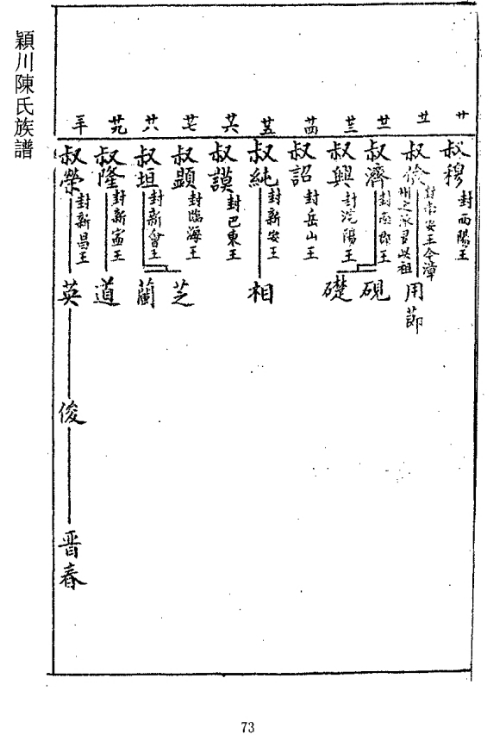 穎川陳氏族譜
廿
叔穆
封西陽王
廿一
叔儉
封南安王今漳
州之派君以祖
用節
廿二
叔濟
封南郡王
硯
廿三
叔興
封沅陽王
礎
廿四
叔詔
封岳山王
廿五
叔純
封新安王
相
廿六
叔謨
封巴東王
廿七
叔顯
封臨海王
芝
廿八
叔坦
封新會王
蘭
廿九
叔隆
封新寗王
道
三十
叔榮
封新昌王
英
俊
晋春
73